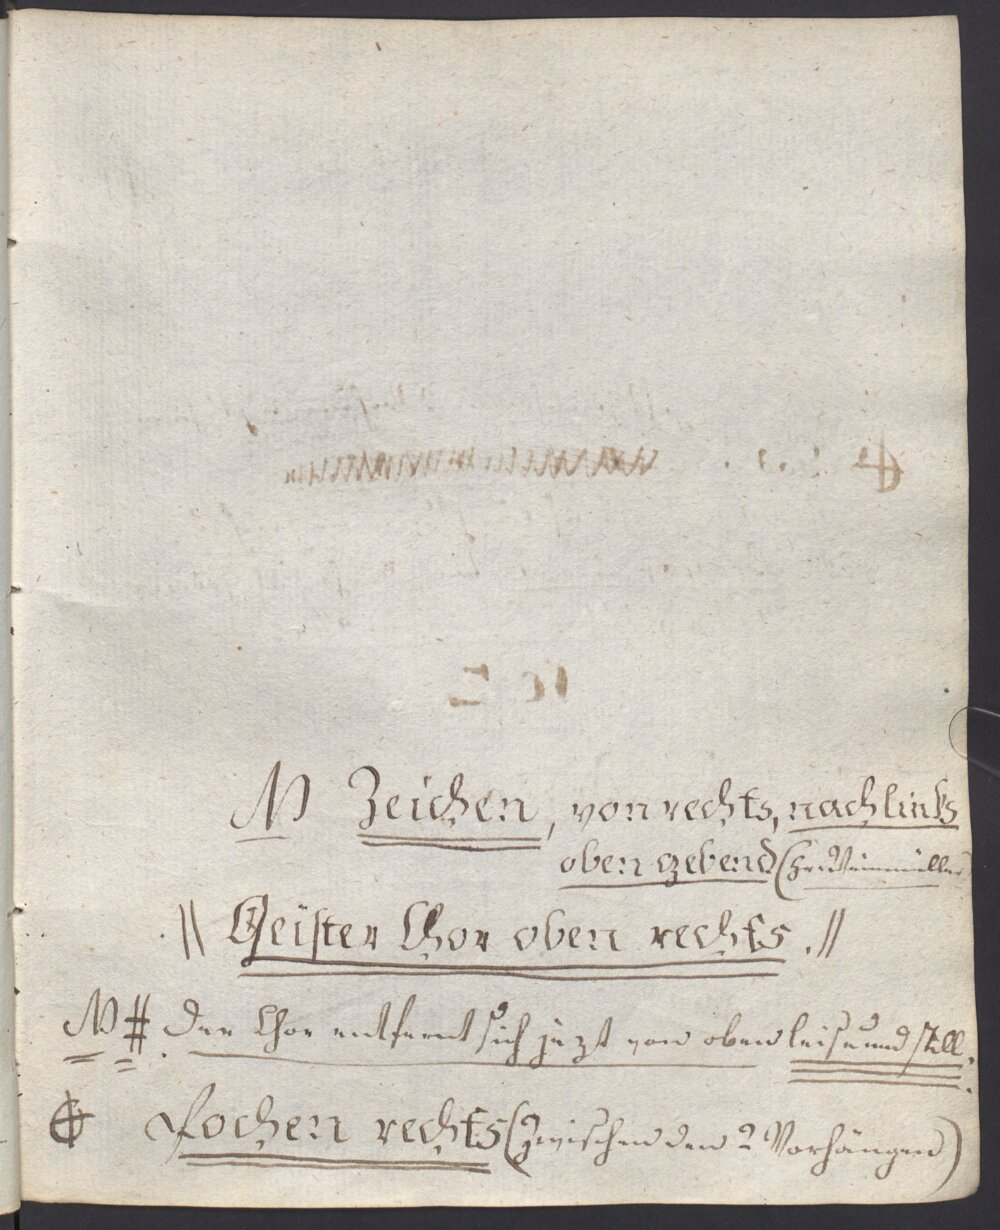 N Zeichen, von rechts, nach links
oben gebend (Hr. Weinmüller
|| Geister Chor oben rechts. //
N # Der Chor entfernt sich jezt von oben leise und still.
Pochen rechts (zwischen den 2 Vorhängen)